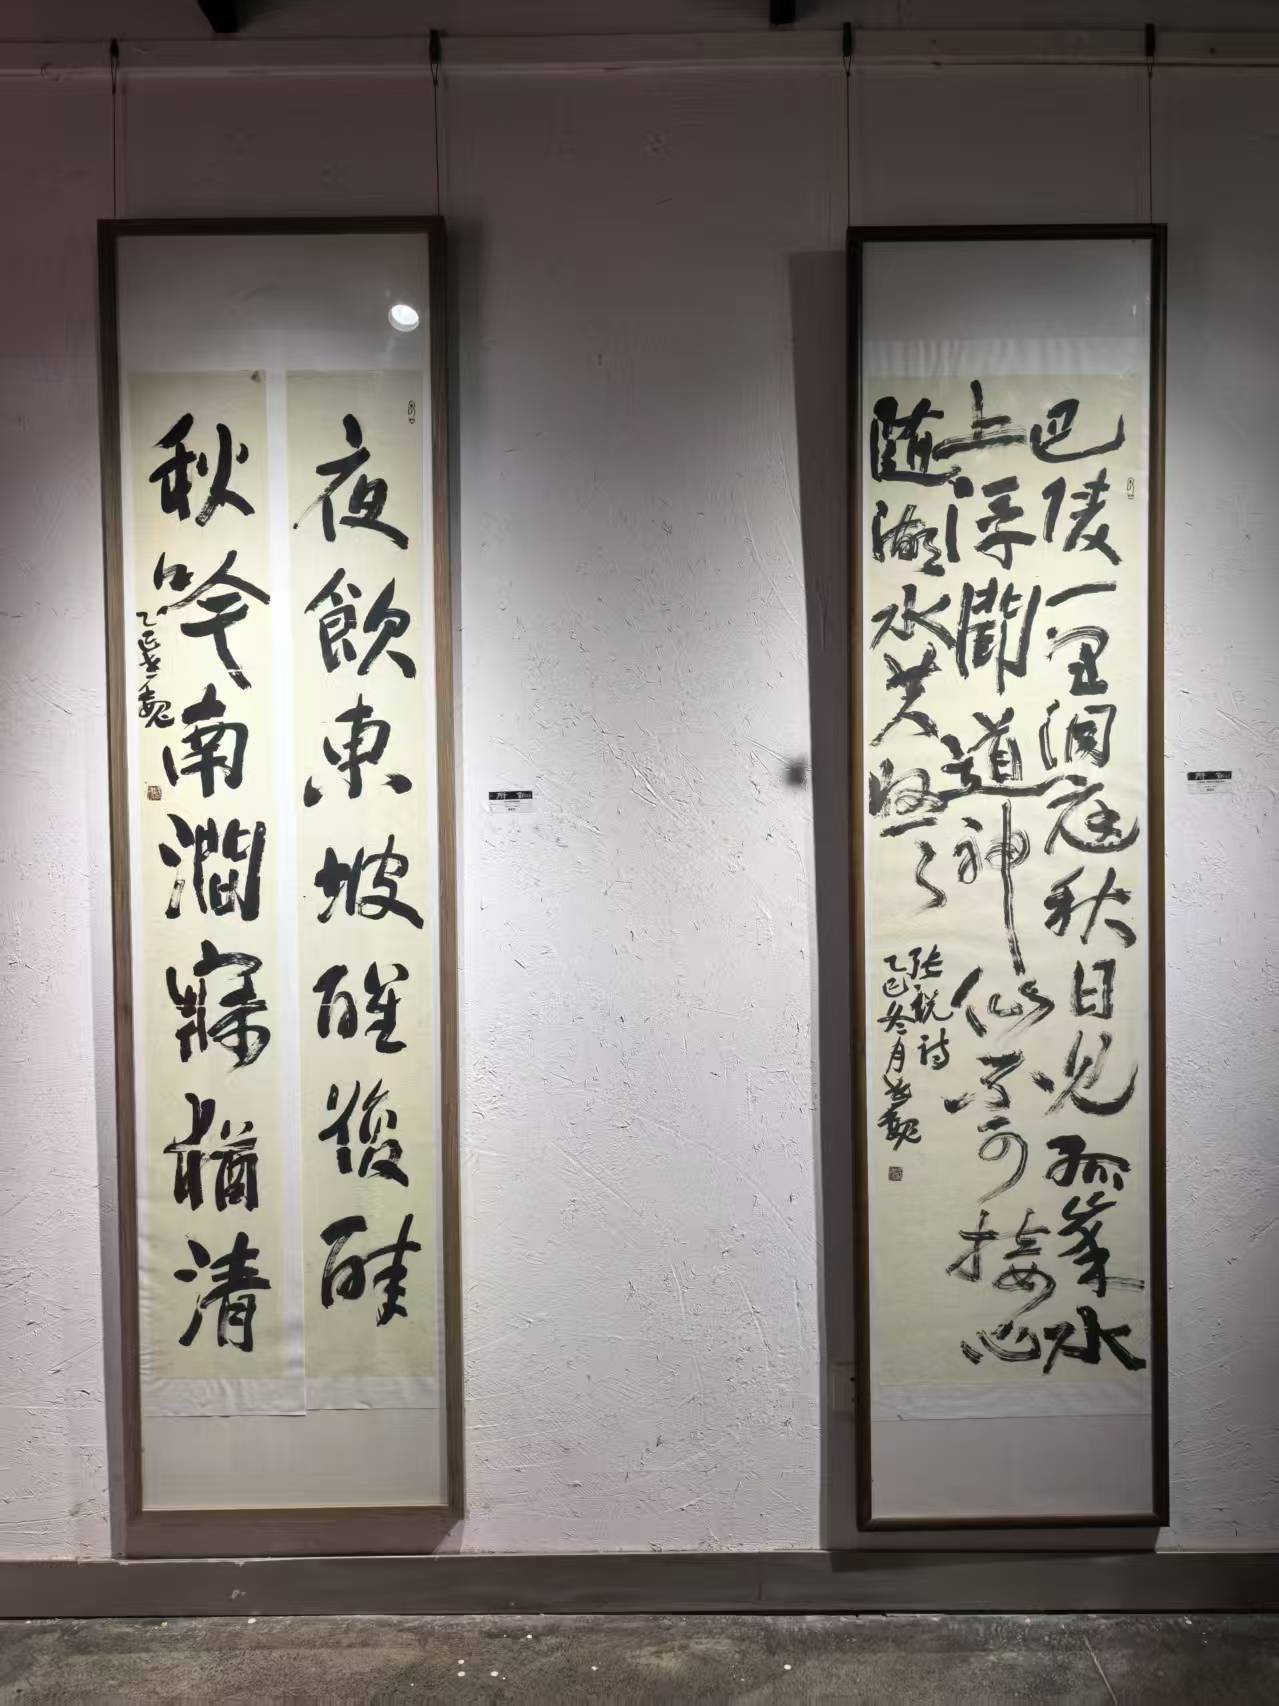 巴陵一望洞庭秋日見孤峯水
上浮聞道神仙不可接心
随湖水共悠々
張說詩
乙巳冬月
夜飲東坡醒復醉
秋吟南澗寐猶清
乙巳